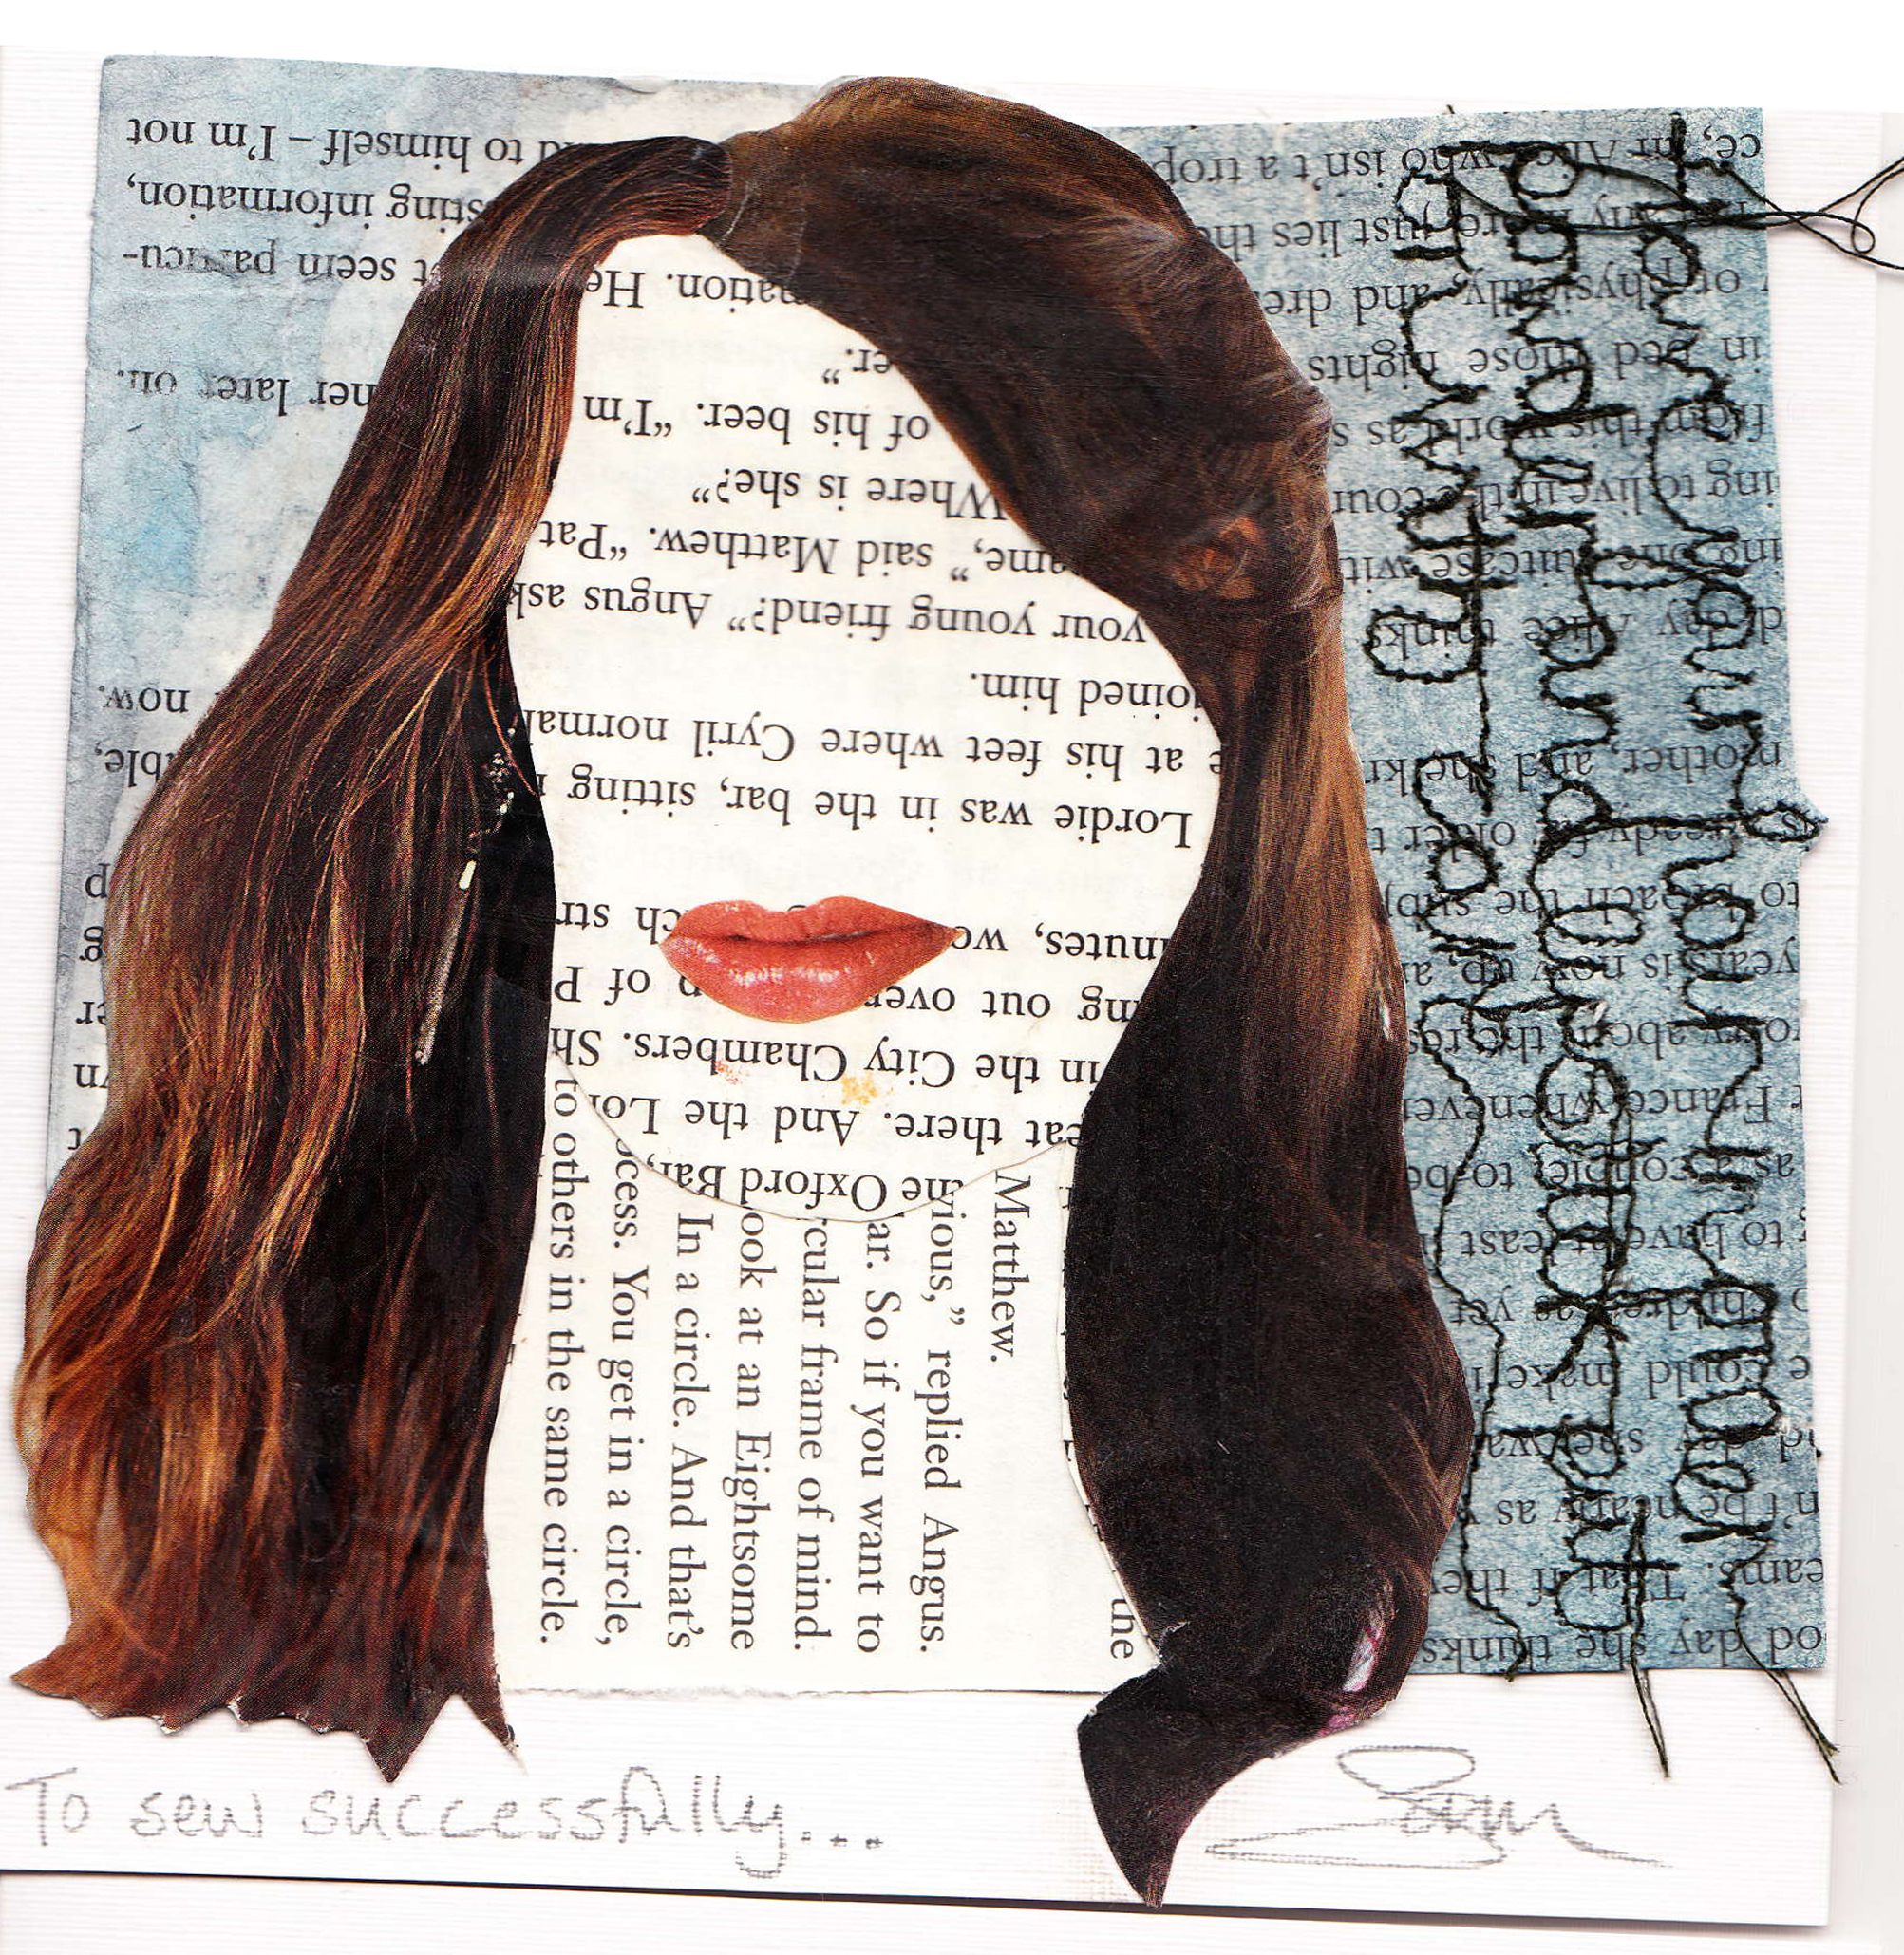 Have your hair in order
powder and lipstick put
the Oxford Bar,
eat there. And the Lor
in the City Chambers. Sh
ng out over of P
inutes, wo ch str
Lordie was in the bar, sitting
at his feet where Cyril normal
joined him.
your young friend?” Angus ask
ame,” said Matthew. “Pat
Where is she?”
of his beer. “I’m
er.”
mation. He
Matthew.
rious,” replied Angus.
ar. So if you want to
rcular frame of mind.
ook at an Eightsome
In a circle. And that’s
ocess. You get in a circle,
to others in the same circle.
the
ible,
now.
ner later on.
t seem particu-
sting information,
to himself – I’m not
od day she thinks
eams. That if they
n’t be nearly as
could make i
children as yet
to have at least
as a couple to-be
France whenever
about the res
years is now up, an
to broach the subj
already far older t
mother, and she kn
d day Alice thinks
ing one suitcase wit
ing to live in the cour
from this work as s
in bed those nights
or physically, and dre
more just lies the
ce, an Alice who isn’t a trop
To sew successfully...